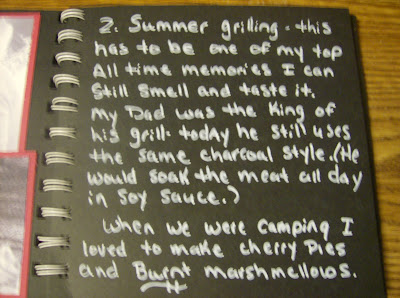 2. Summer grilling - this
has to be one of my top
All time memories I can
Still smell and taste it.
my Dad was the King of
his grill- today he still uses
the same charcoal style. (He
would soak the meat all day
in soy sauce.)
When we were camping I
loved to make cherry Pies
and Burnt marshmellows.